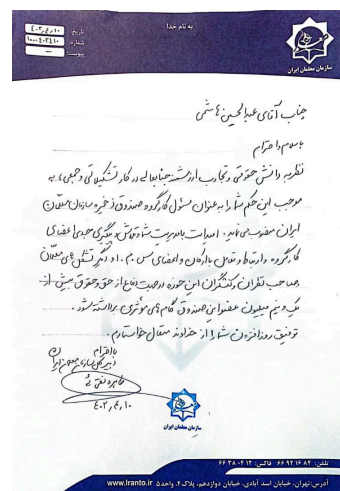 به نام خدا
تاریخ: ۴۰۲,۴,۱۰
شماره: ۱۰۰۰۴۰۲۴۱۰
پیوست: —
سازمان معلمان ایران
جناب آقای عبدالحسین هاشمی
با سلام و احترام
نظر به دانش حقوقی و تجارب ارزشمند جنابعالی در کار تشکیلاتی و جمعی، به
موجب این حکم شما را به عنوان مسئول کارگروه صندوق ذخیره سازمان معلمان
ایران منصوب می‌نماید. امید است با مدیریت شما و تلاش و پیگیری جدی اعضای
کارگروه و ارتباط و تعامل با ارکان و اعضای س.م.ا. و دیگر تشکل‌های معلمان
و صاحب نظران و کنشگران این حوزه در جهت دفاع از حق و حقوق بیش از
یک و نیم میلیون عضو این صندوق گام‌های مؤثری برداشته شود.
توفیق روزافزون شما را از خداوند متعال خواستارم.
با احترام
دبیرکل سازمان معلمان ایران
طاهره نقی‌ئی
۴۰۲,۴,۱۰
سازمان معلمان ایران
تلفن: ۸۴ ۱۶ ۹۲ ۶۶ فاکس: ۱۲ ۰۴ ۳۸ ۶۶
آدرس: تهران، خیابان اسد آبادی، خیابان دوازدهم، پلاک ۴، واحد ۵ www.Iranto.ir